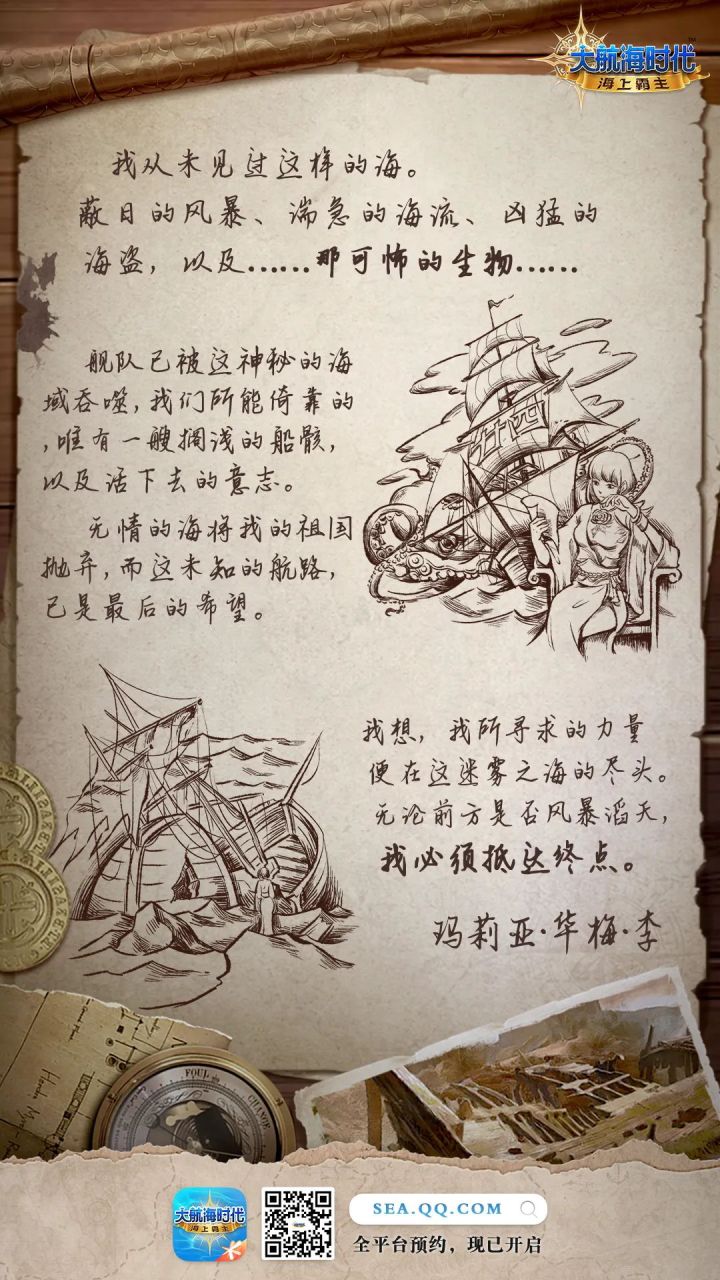 大航海时代
TM
海上霸主
我从未见过这样的海。
蔽日的风暴、湍急的海流、凶猛的
海盗，以及......那可怖的生物......
舰队已被这神秘的海
域吞噬，我们所能倚靠的
，唯有一艘搁浅的船骸，
以及活下去的意志。
无情的海将我的祖国
抛弃，而这未知的航路，
已是最后的希望。
我想，我所寻求的力量
便在这迷雾之海的尽头。
无论前方是否风暴滔天，
我必须抵达终点。
玛莉亚·华梅·李
FOUL
CHANGE
大航海时代
海上霸主
SEA.QQ.COM
全平台预约，现已开启